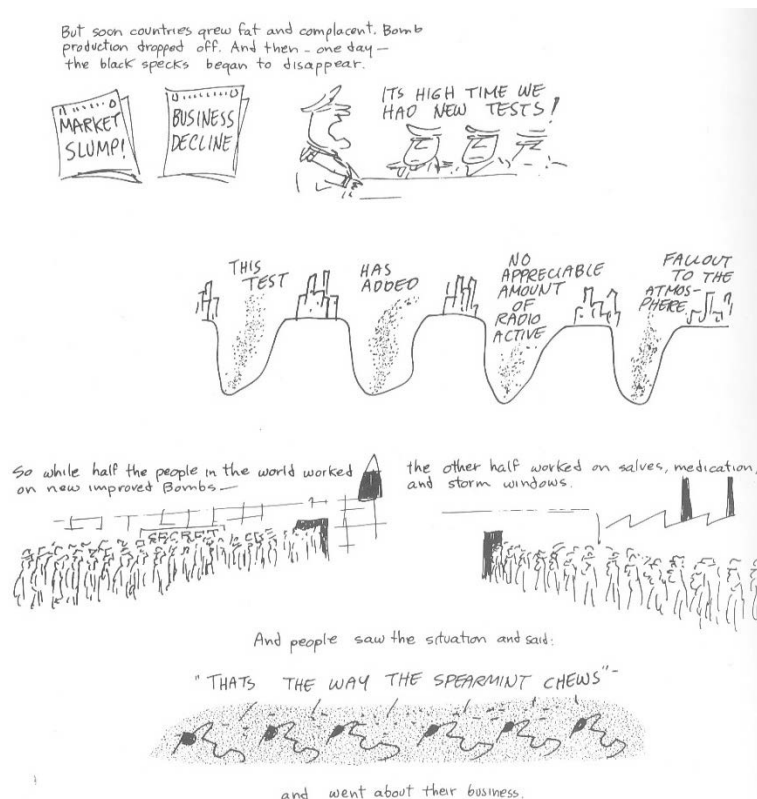 But soon countries grew fat and complacent. Bomb
production dropped off. And then - one day —
the black specks began to disappear.
MARKET
SLUMP!
BUSINESS
DECLINE
ITS HIGH TIME WE
HAD NEW TESTS!
THIS
TEST
HAS
ADDED
NO
APPRECIABLE
AMOUNT
OF
RADIO
ACTIVE
FALLOUT
TO THE
ATMOS-
PHERE
So while half the people in the world worked
on new improved Bombs —
SECRET
the other half worked on salves, medication,
and storm windows.
And people saw the situation and said:
"THATS THE WAY THE SPEARMINT CHEWS" -
and went about their business.